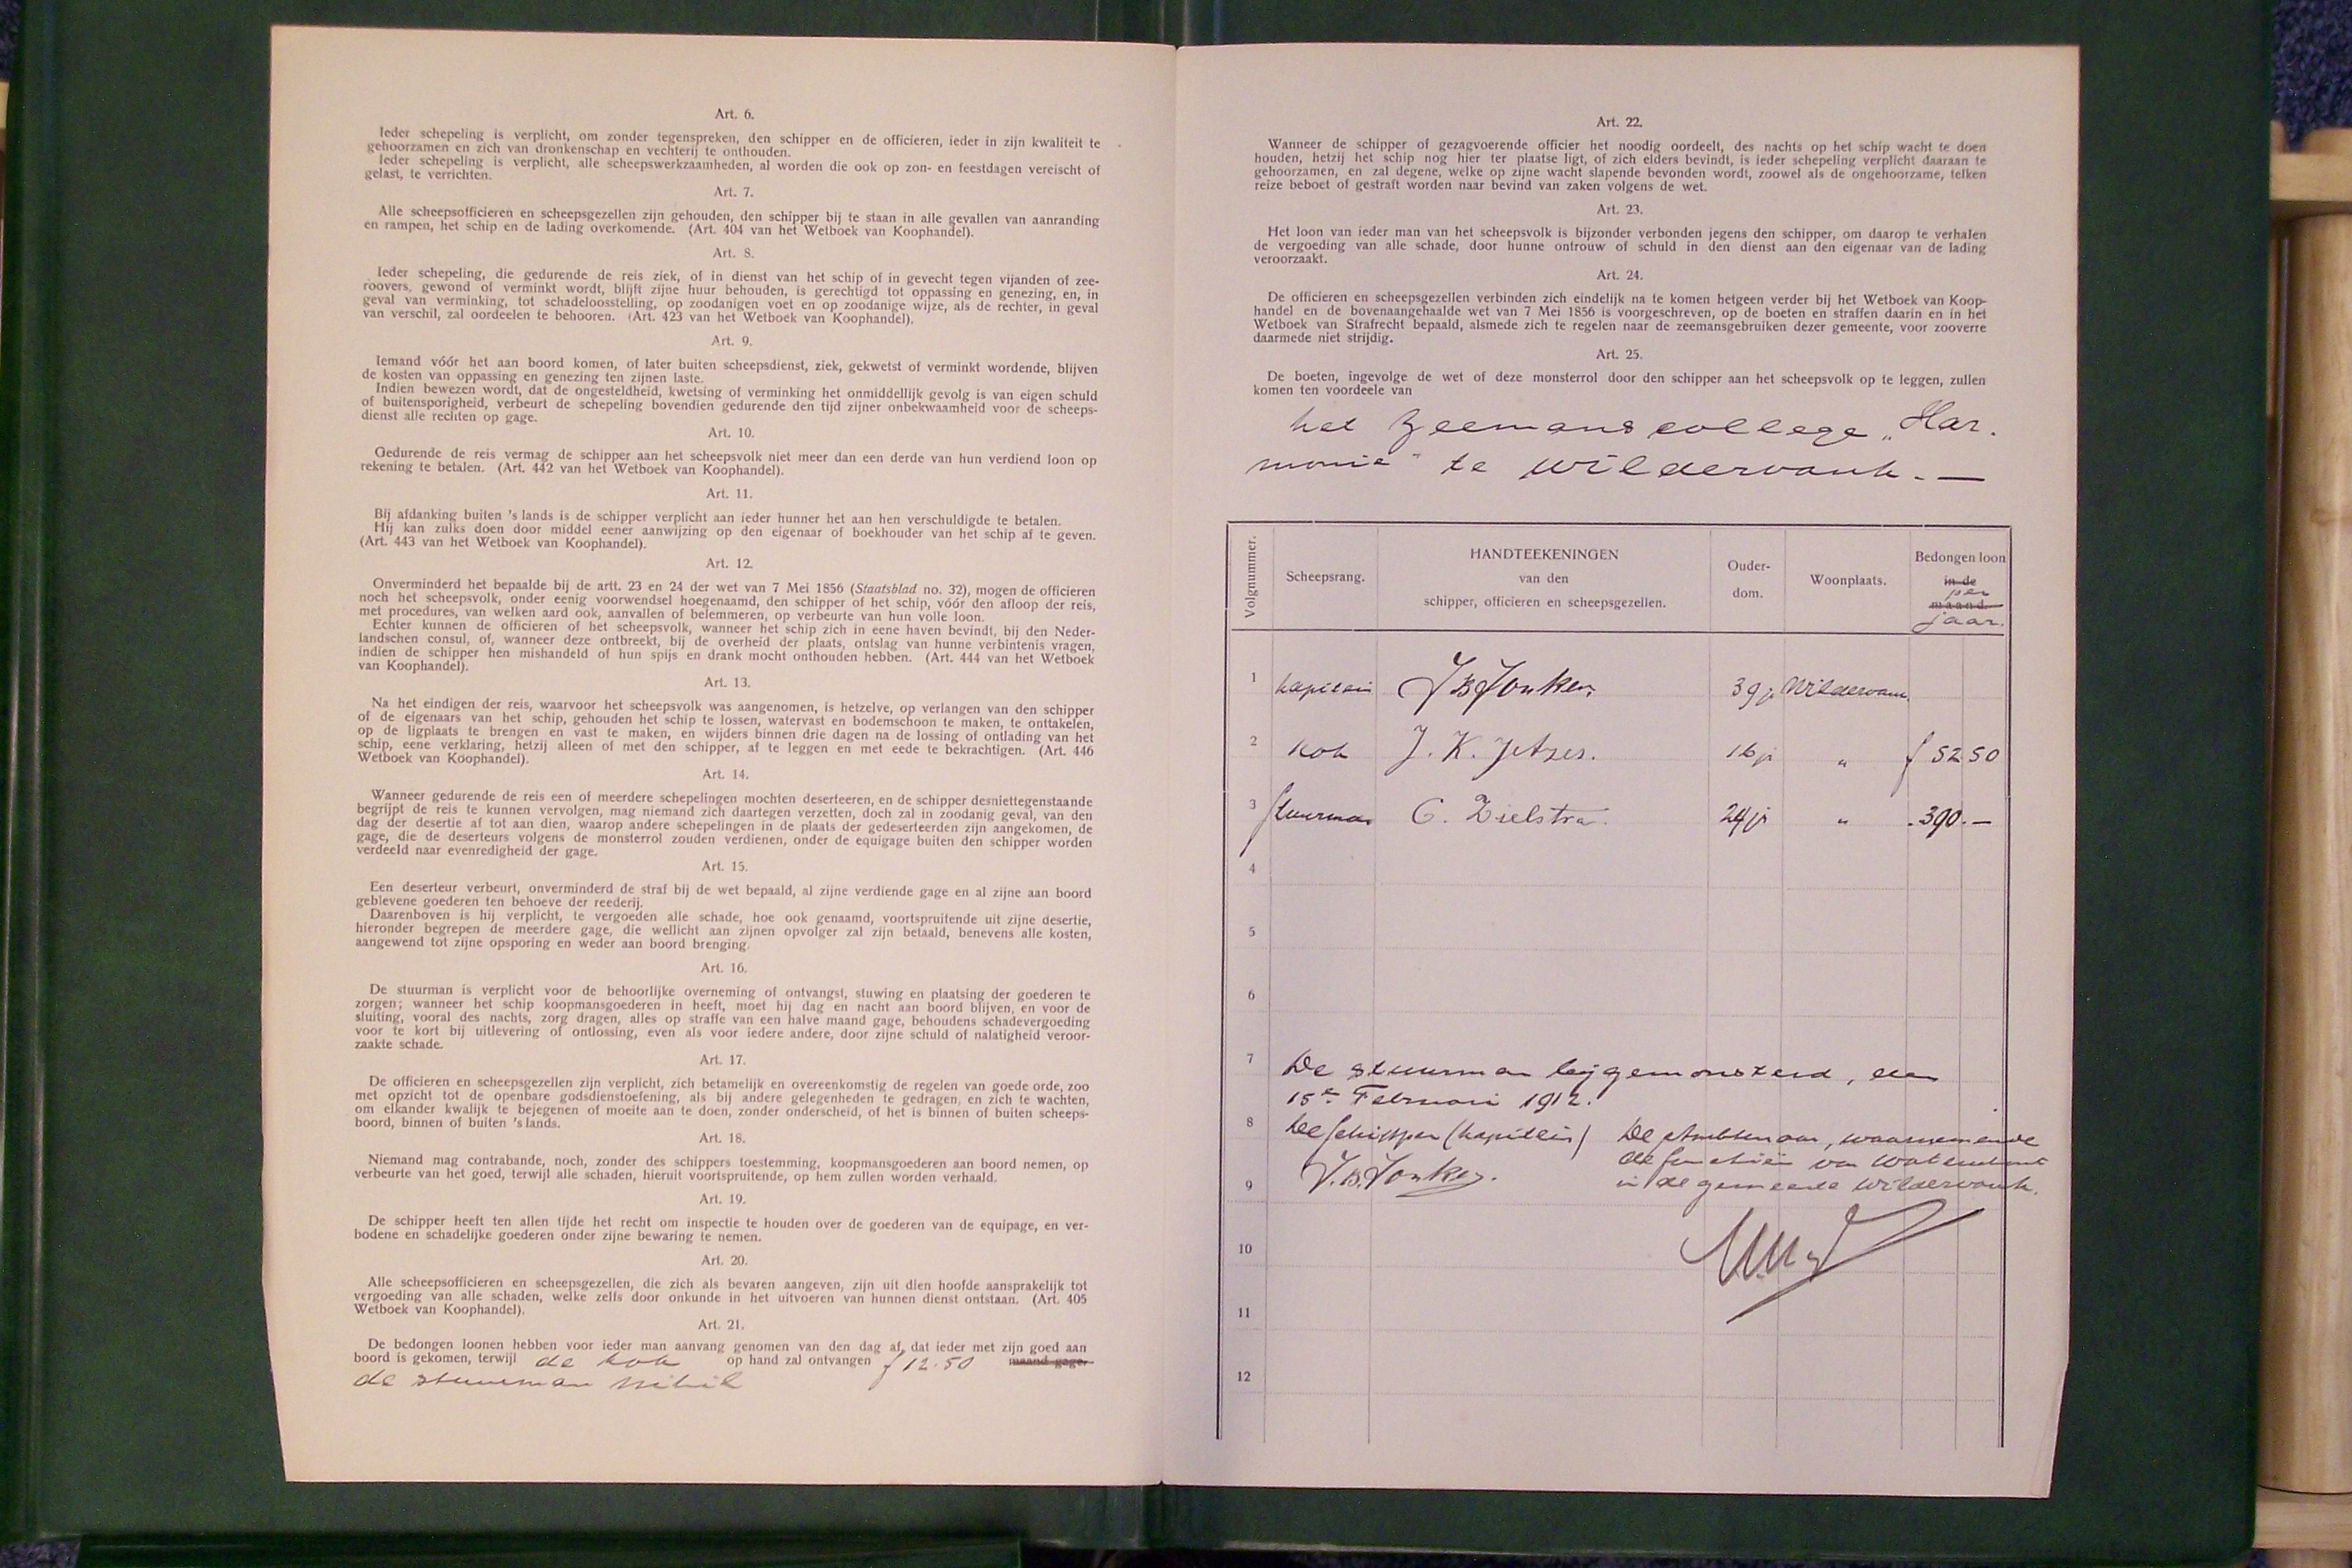 Art. 6.
Ieder schepeling is verplicht, om zonder tegenspreken, den schipper en de officieren, ieder in zijn kwaliteit te
gehoorzamen en zich van dronkenschap en vechterij te onthouden.
Ieder schepeling is verplicht, alle scheepswerkzaamheden, al worden die ook op zon- en feestdagen vereischt of
gelast, te verrichten.
Art. 7.
Alle scheepsofficieren en scheepsgezellen zijn gehouden, den schipper bij te staan in alle gevallen van aanranding
en rampen, het schip en de lading overkomende. (Art. 404 van het Wetboek van Koophandel).
Art. 8.
Ieder schepeling, die gedurende de reis ziek, of in dienst van het schip of in gevecht tegen vijanden of zee-
roovers, gewond of verminkt wordt, blijft zijne huur behouden, is gerechtigd tot oppassing en genezing, en, in
geval van verminking, tot schadeloosstelling, op zoodanigen voet en op zoodanige wijze, als de rechter, in geval
van verschil, zal oordeelen te behooren. (Art. 423 van het Wetboek van Koophandel).
Art. 9.
Iemand vóór het aan boord komen, of later buiten scheepsdienst, ziek, gekwetst of verminkt wordende, blijven
de kosten van oppassing en genezing ten zijnen laste.
Indien bewezen wordt, dat de ongesteldheid, kwetsing of verminking het onmiddellijk gevolg is van eigen schuld
of buitensporigheid, verbeurt de schepeling bovendien gedurende den tijd zijner onbekwaamheid voor de scheeps-
dienst alle rechten op gage.
Art. 10.
Gedurende de reis vermag de schipper aan het scheepsvolk niet meer dan een derde van hun verdiend loon op
rekening te betalen. (Art. 442 van het Wetboek van Koophandel).
Art. 11.
Bij afdanking buiten 's lands is de schipper verplicht aan ieder hunner het aan hen verschuldigde te betalen.
Hij kan zulks doen door middel eener aanwijzing op den eigenaar of boekhouder van het schip af te geven.
(Art. 443 van het Wetboek van Koophandel).
Art. 12.
Onverminderd het bepaalde bij de artt. 23 en 24 der wet van 7 Mei 1856 (Staatsblad no. 32), mogen de officieren
noch het scheepsvolk, onder eenig voorwendsel hoegenaamd, den schipper of het schip, vóór den afloop der reis,
met procedures, van welken aard ook, aanvallen of belemmeren, op verbeurte van hun volle loon.
Echter kunnen de officieren of het scheepsvolk, wanneer het schip zich in eene haven bevindt, bij den Neder-
landschen consul, of, wanneer deze ontbreekt, bij de overheid der plaats, ontslag van hunne verbintenis vragen,
indien de schipper hen mishandeld of hun spijs en drank mocht onthouden hebben. (Art. 444 van het Wetboek
van Koophandel).
Art. 13.
Na het eindigen der reis, waarvoor het scheepsvolk was aangenomen, is hetzelve, op verlangen van den schipper
of de eigenaars van het schip, gehouden het schip te lossen, watervast en bodemschoon te maken, te onttakelen,
op de ligplaats te brengen en vast te maken, en wijders binnen drie dagen na de lossing of ontlading van het
schip, eene verklaring, hetzij alleen of met den schipper, af te leggen en met eede te bekrachtigen. (Art. 446
Wetboek van Koophandel).
Art. 14.
Wanneer gedurende de reis een of meerdere schepelingen mochten deserteeren, en de schipper desniettegenstaande
begrijpt de reis te kunnen vervolgen, mag niemand zich daartegen verzetten, doch zal in zoodanig geval, van den
dag der desertie af tot aan dien, waarop andere schepelingen in de plaats der gedeserteerden zijn aangekomen, de
gage, die de deserteurs volgens de monsterrol zouden verdienen, onder de equigage buiten den schipper worden
verdeeld naar evenredigheid der gage.
Art. 15.
Een deserteur verbeurt, onverminderd de straf bij de wet bepaald, al zijne verdiende gage en al zijne aan boord
geblevene goederen ten behoeve der reederij.
Daarenboven is hij verplicht, te vergoeden alle schade, hoe ook genaamd, voortspruitende uit zijne desertie,
hieronder begrepen de meerdere gage, die wellicht aan zijnen opvolger zal zijn betaald, benevens alle kosten,
aangewend tot zijne opsporing en weder aan boord brenging.
Art. 16.
De stuurman is verplicht voor de behoorlijke overneming of ontvangst, stuwing en plaatsing der goederen te
zorgen; wanneer het schip koopmansgoederen in heeft, moet hij dag en nacht aan boord blijven, en voor de
sluiting, vooral des nachts, zorg dragen, alles op straffe van een halve maand gage, behoudens schadevergoeding
voor te kort bij uitlevering of ontlossing, even als voor iedere andere, door zijne schuld of nalatigheid veroor-
zaakte schade.
Art. 17.
De officieren en scheepsgezellen zijn verplicht, zich betamelijk en overeenkomstig de regelen van goede orde, zoo
met opzicht tot de openbare godsdienstoefening, als bij andere gelegenheden te gedragen, en zich te wachten,
om elkander kwalijk te bejegenen of moeite aan te doen, zonder onderscheid, of het is binnen of buiten scheeps-
boord, binnen of buiten 's lands.
Art. 18.
Niemand mag contrabande, noch, zonder des schippers toestemming, koopmansgoederen aan boord nemen, op
verbeurte van het goed, terwijl alle schaden, hieruit voortspruitende, op hem zullen worden verhaald.
Art. 19.
De schipper heeft ten allen tijde het recht om inspectie te houden over de goederen van de equipage, en ver-
bodene en schadelijke goederen onder zijne bewaring te nemen.
Art. 20.
Alle scheepsofficieren en scheepsgezellen, die zich als bevaren aangeven, zijn uit dien hoofde aansprakelijk tot
vergoeding van alle schaden, welke zelfs door onkunde in het uitvoeren van hunnen dienst ontstaan. (Art. 405
Wetboek van Koophandel).
Art. 21.
De bedongen loonen hebben voor ieder man aanvang genomen van den dag af, dat ieder met zijn goed aan
boord is gekomen, terwijl de kok op hand zal ontvangen f 12.50 maand gage.
de stuurman nihil
Art. 22.
Wanneer de schipper of gezagvoerende officier het noodig oordeelt, des nachts op het schip wacht te doen
houden, hetzij het schip nog hier ter plaatse ligt, of zich elders bevindt, is ieder schepeling verplicht daaraan te
gehoorzamen, en zal degene, welke op zijne wacht slapende bevonden wordt, zoowel als de ongehoorzame, telken
reize beboet of gestraft worden naar bevind van zaken volgens de wet.
Art. 23.
Het loon van ieder man van het scheepsvolk is bijzonder verbonden jegens den schipper, om daarop te verhalen
de vergoeding van alle schade, door hunne ontrouw of schuld in den dienst aan den eigenaar van de lading
veroorzaakt.
Art. 24.
De officieren en scheepsgezellen verbinden zich eindelijk na te komen hetgeen verder bij het Wetboek van Koop-
handel en de bovenaangehaalde wet van 7 Mei 1856 is voorgeschreven, op de boeten en straffen daarin en in het
Wetboek van Strafrecht bepaald, alsmede zich te regelen naar de zeemansgebruiken dezer gemeente, voor zooverre
daarmede niet strijdig.
Art. 25.
De boeten, ingevolge de wet of deze monsterrol door den schipper aan het scheepsvolk op te leggen, zullen
komen ten voordeele van
het Zeemanscollege „Har.
monie" te Wildervank. —
Volgnummer.
Scheepsrang.
HANDTEEKENINGEN
van den
schipper, officieren en scheepsgezellen.
Ouder-
dom.
Woonplaats.
Bedongen loon
in de
per
maand.
jaar.
1 kapitein J B Jonker 39 j. Wildervank
2 kok J. K. Jetzes. 16 j. „ f 52 50
3 stuurman G. Zielstra. 24 j. „ . 390. —
4
5
6
7 De stuurman bijgemonsterd, den
15en Februari 1912.
8 De schipper (kapitein) De Ambtenaar, waarnemende
J. B. Jonker. de functiën van Waterschout
9 in de gemeente Wildervank.
10
11
12